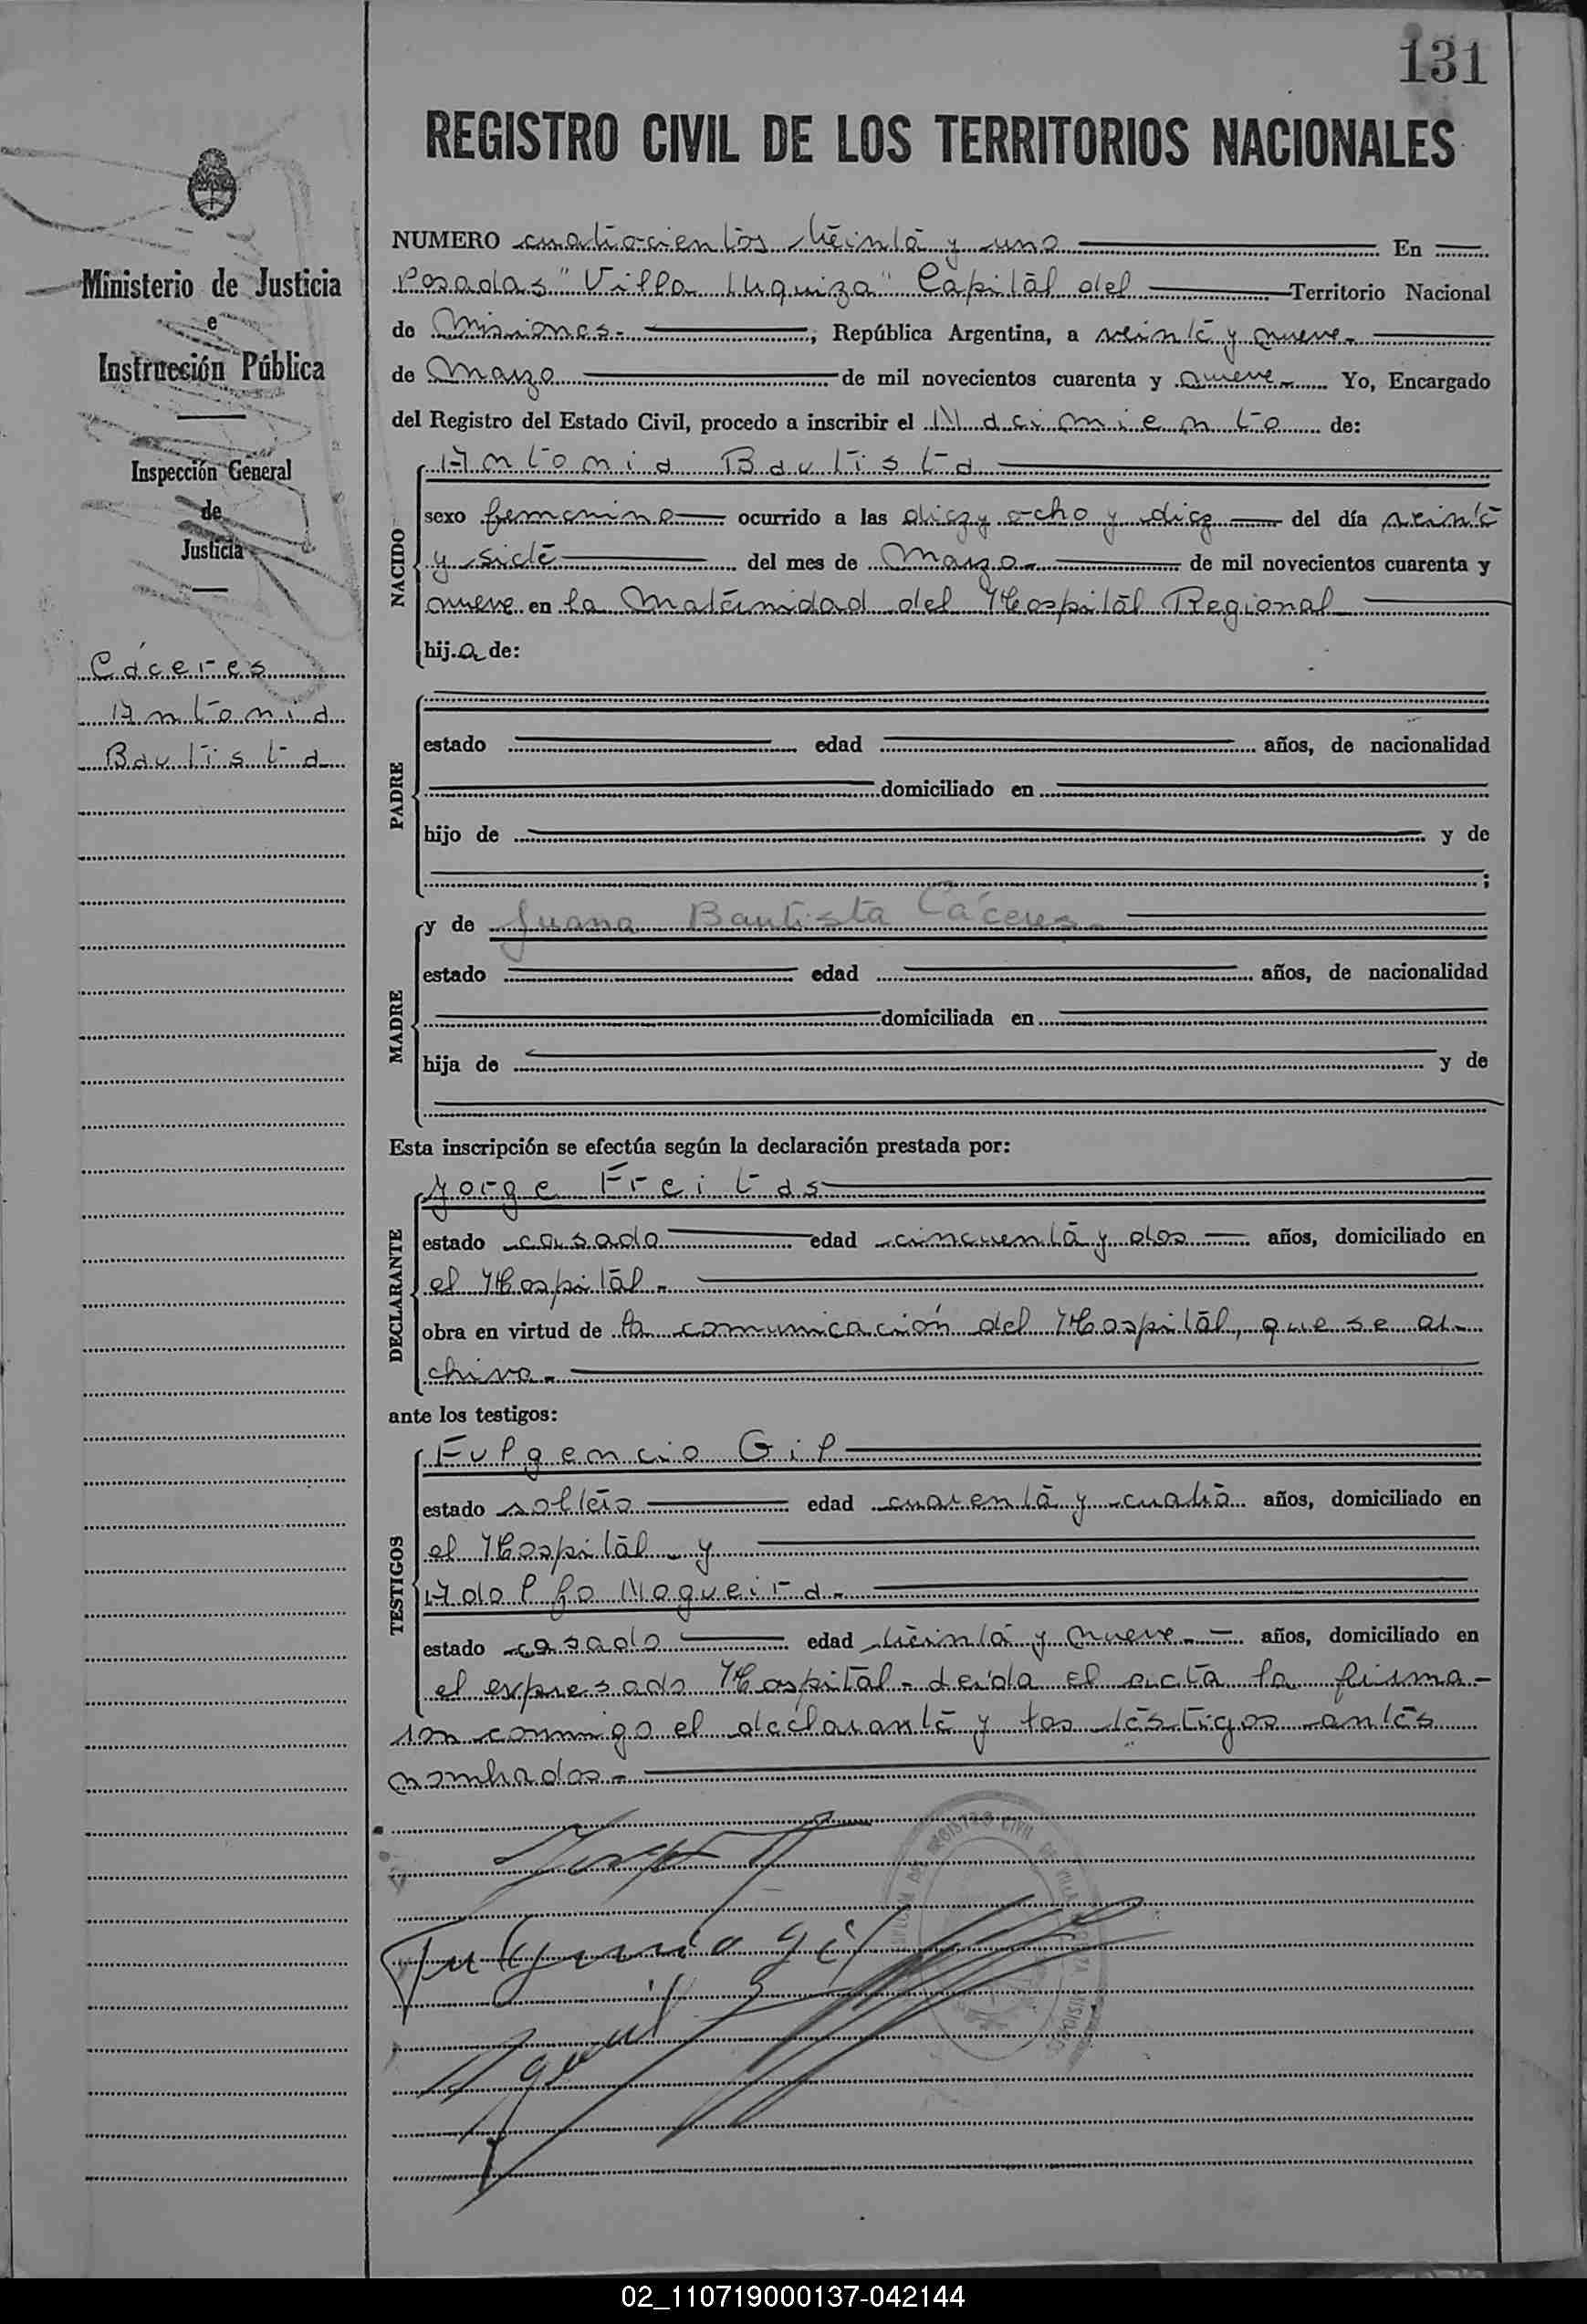 131
REGISTRO CIVIL DE LOS TERRITORIOS NACIONALES
Ministerio de Justicia
e
Instrucción Pública
Inspección General
de
Justicia
Cáceres
Antonia
Bautista
NUMERO cuatrocientos treinta y uno En
Posadas "Villa Urquiza" Capital del Territorio Nacional
de Misiones.- , República Argentina, a veinte y nueve.-
de Marzo de mil novecientos cuarenta y nueve.- Yo, Encargado
del Registro del Estado Civil, procedo a inscribir el Nacimiento de:
NACIDO
Antonia Bautista
sexo femenino ocurrido a las diez y ocho y diez del día veinte
y siete del mes de Marzo.- de mil novecientos cuarenta y
nueve en la Maternidad del Hospital Regional
hij.a de:
PADRE
estado edad años, de nacionalidad
domiciliado en
hijo de y de
;
MADRE
y de Juana Bautista Cáceres.-
estado edad años, de nacionalidad
domiciliada en
hija de y de
Esta inscripción se efectúa según la declaración prestada por:
DECLARANTE
Jorge Freitas
estado casado edad cincuenta y dos años, domiciliado en
el Hospital.-
obra en virtud de la comunicación del Hospital, que se ar-
chiva.-
ante los testigos:
TESTIGOS
Fulgencio Gil
estado soltero edad cuarenta y cuatro años, domiciliado en
el Hospital y
Adolfo Nogueira.-
estado casado edad treinta y nueve.- años, domiciliado en
el expresado Hospital.- Leída el acta la firma-
ron conmigo el declarante y los testigos antes
nombrados.-
Fulgencio Gil
02_110719000137-042144